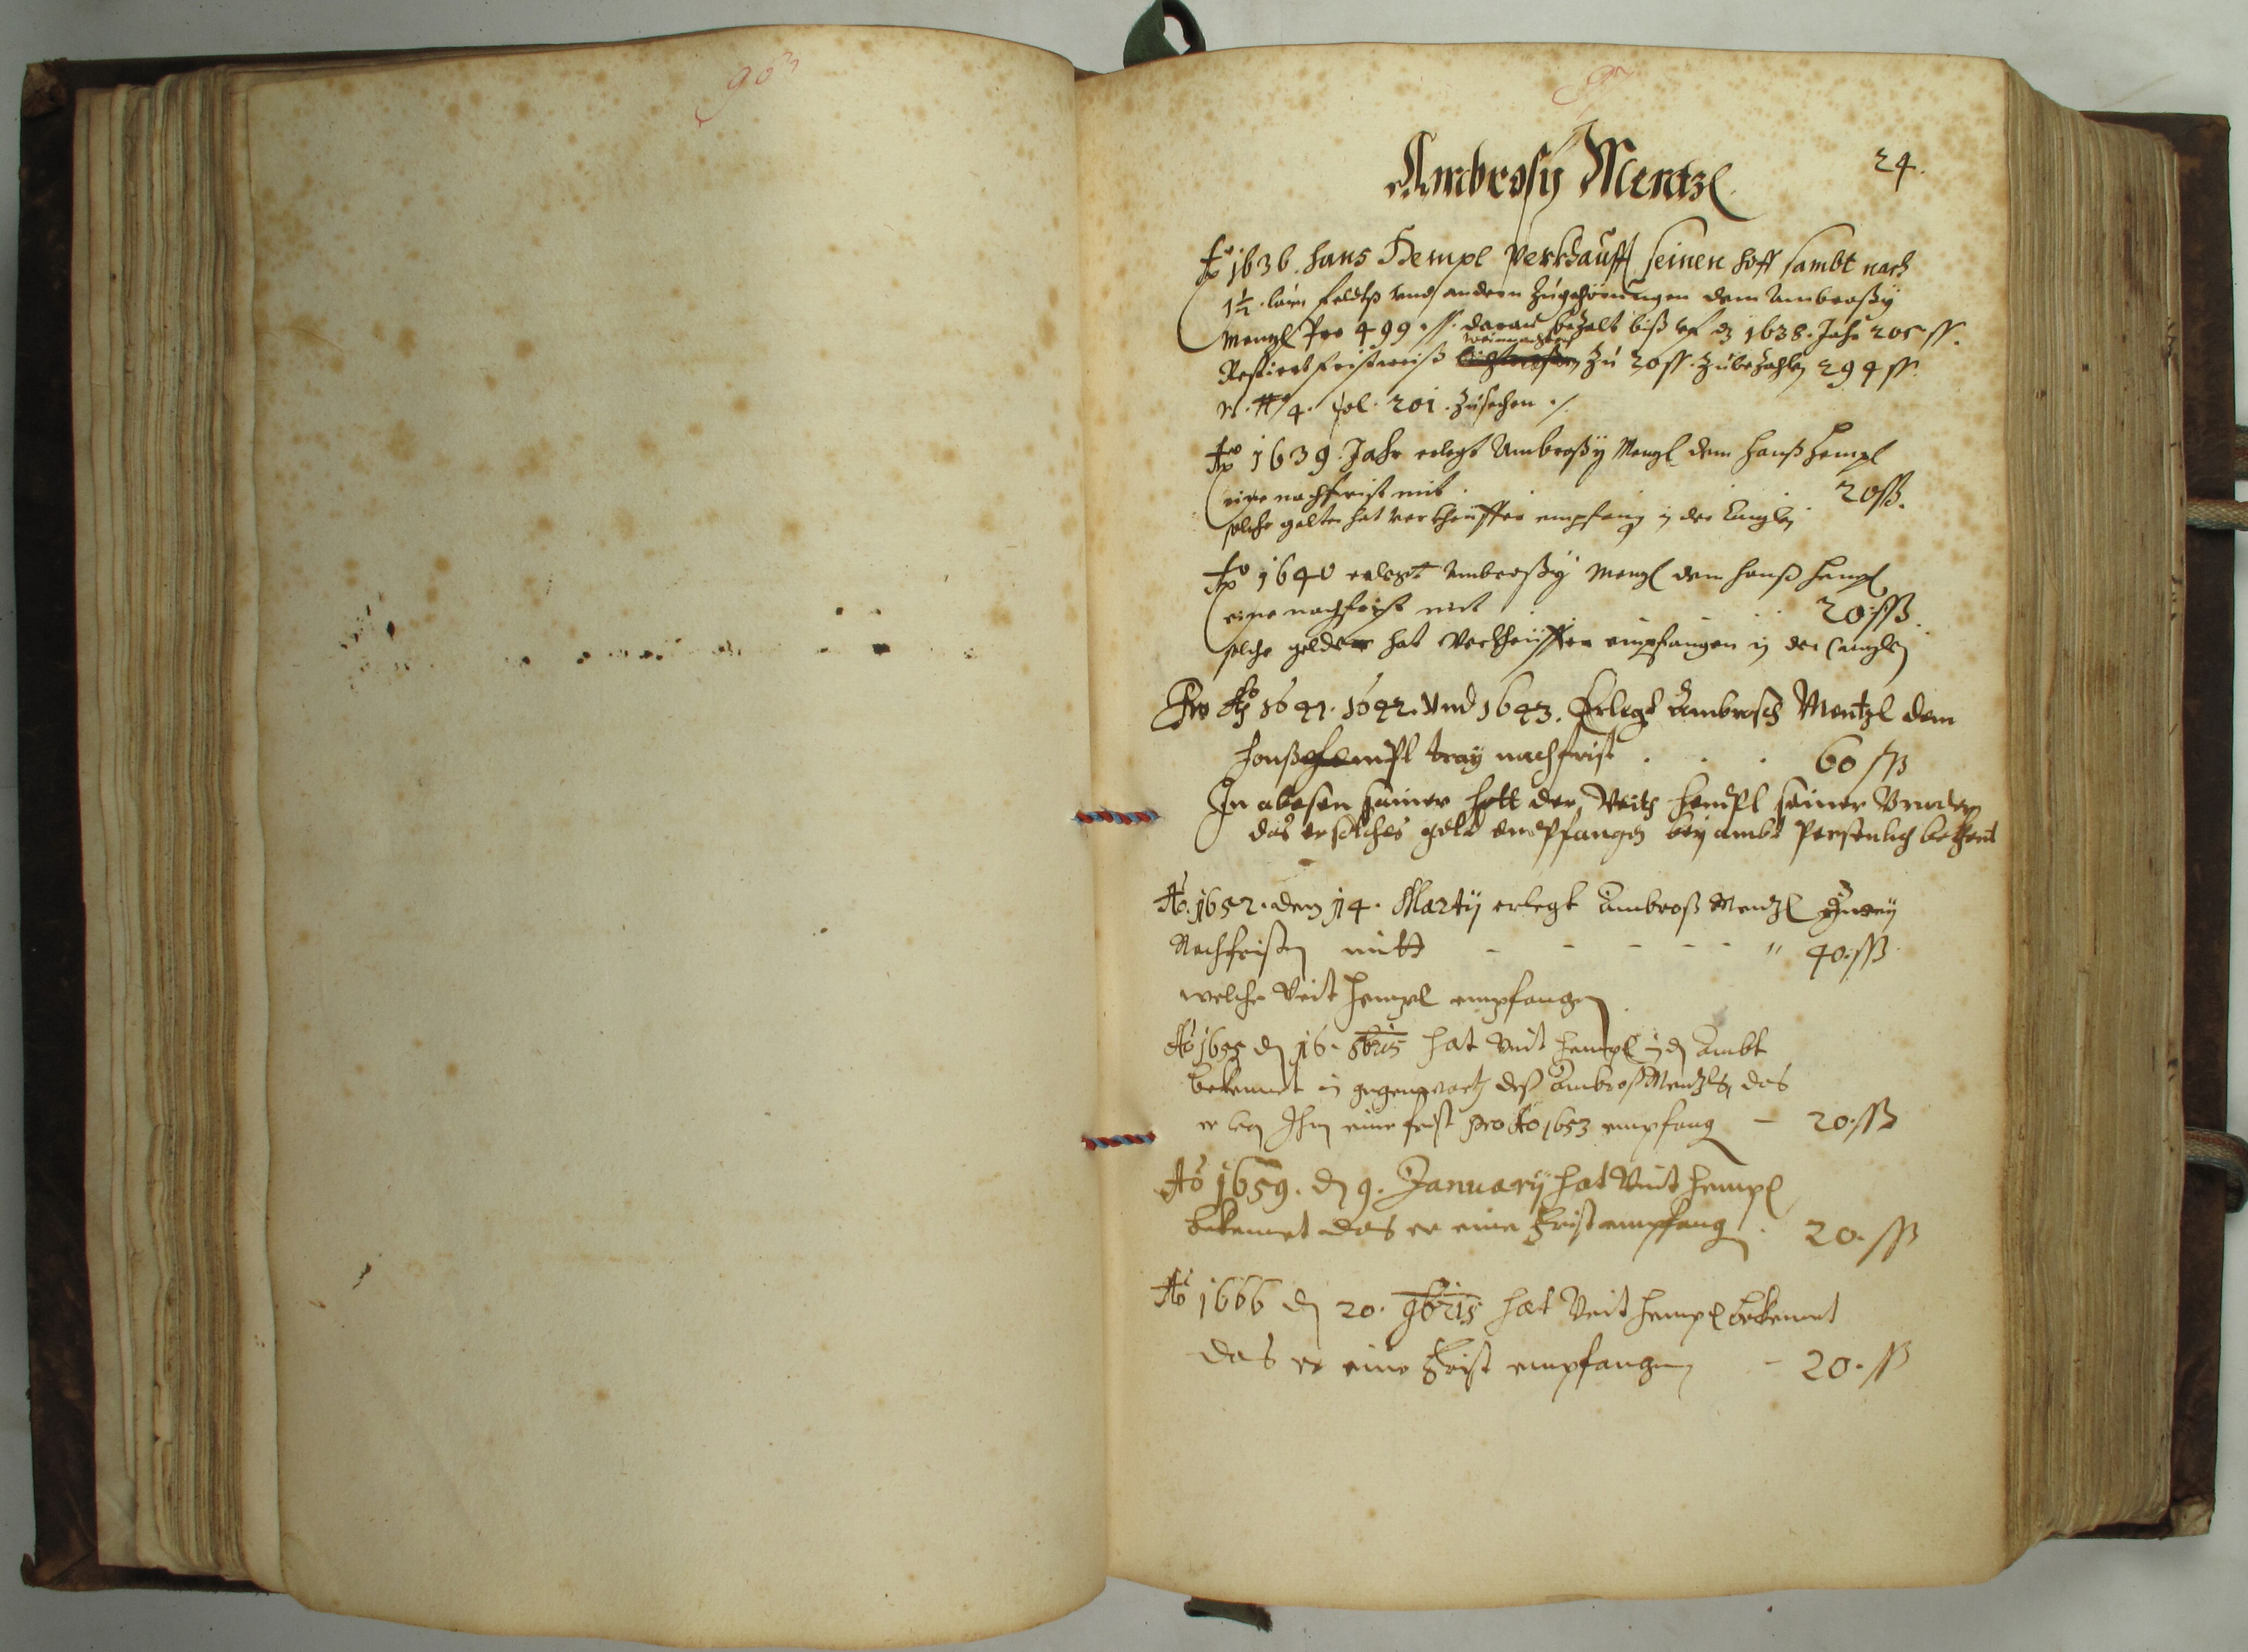 96
97
Ambrosy Mentzl
24.
Ao 1636. Hans Hempl Verkhaufft seinen Hoff sambt nach
1½ laün Feldtß vnd andern Zugehörungen dem Ambrosßy
Menzl Pro 499 ß. daran bezalt biß vf dz 1638. Jahr 205 ß.
weinnachten
Restiert fristweiß zu 20 ß. Zubezahln 294 ß.
N. 4. fol. 201. Zusehen ./.
Ao 1639. Jahr erlegt Ambrosßy Menzl dem Hanß Hempl
eine nachfrist mit . 20 ß.
solche gelter hat verkheuffer empfang in der Canzley
Ao 1640 erlegt Ambrosßy Menzl dem Hanß Hempl
eine nachfrist mit . . . 20 ß.
solche gelder hat Verkheuffer empfangen in der Canzley
Pro Ao 1641. 1642. Vnd 1643. Erlegt Ambrosch Mentzl dem
Hanß Hempl tray nachfrist . . . 60 ß
In abesen seiner hatt der Veith Hempl seiner Bruder
das er solches geld emPfangen bey ambt Persenlich bekhent
Ao. 1652. den 14. Marty erlegt Ambroß Mentzl Zwey
Nachfristen mitt - - - - - " 40 ß
welche Veit Hempl empfangen
Ao 1655 dn 16. 8bris hat Veit Hempl in dn Ambt
bekennet in gegenwartz deß Ambroß Mentzls, das
er von Ihm eine frist pro Ao 1653 empfang - 20 ß
Ao 1659. dn 9. January hat Veit Hempl
bekennet das er eine Frist empfang . 20. ß
Ao 1666 dn 20. 9bris hat Veit Hempl bekennet
das er eine Frist empfangen - 20. ß